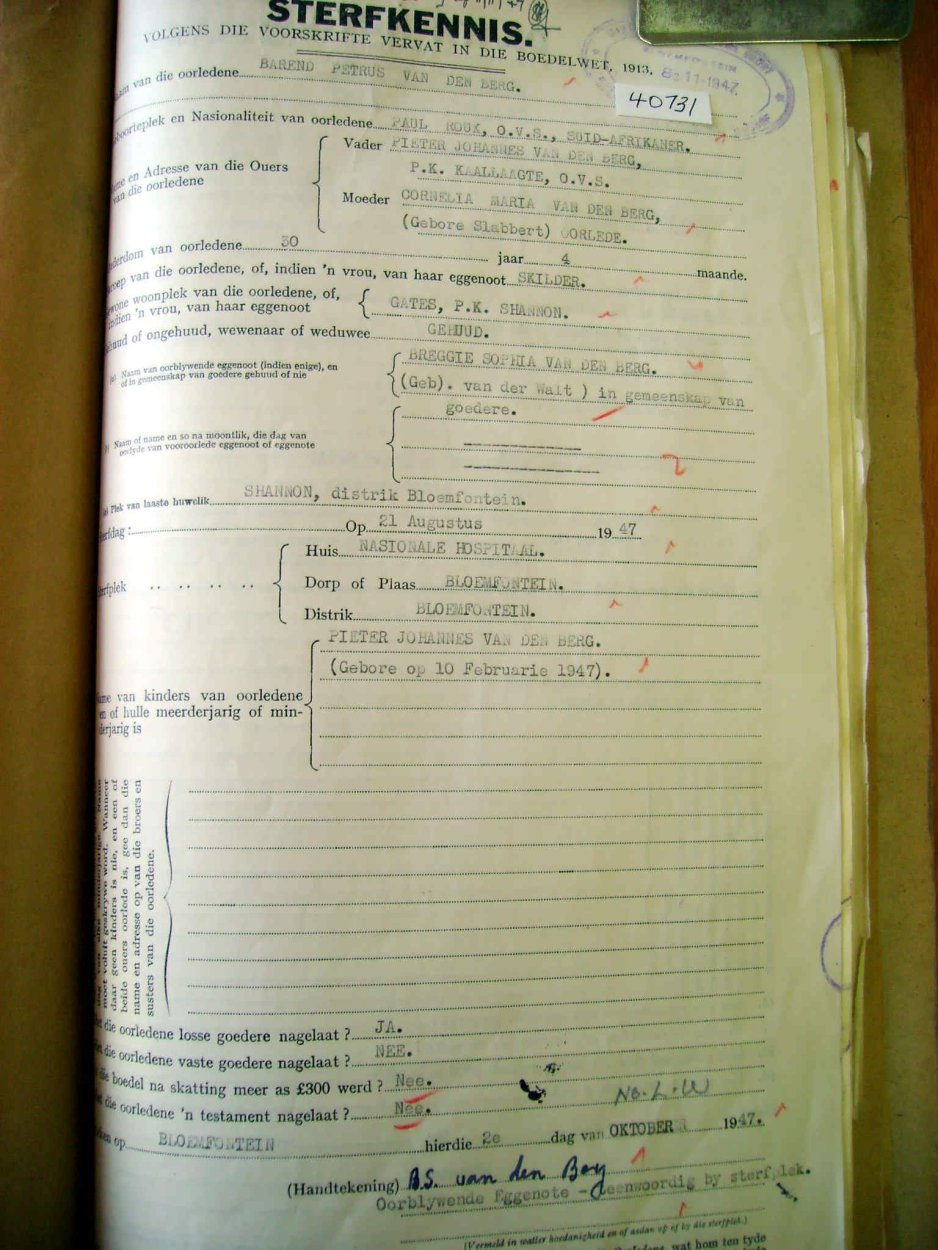 STERFKENNIS.
VOLGENS DIE VOORSKRIFTE VERVAT IN DIE BOEDELWET, 1913.
8-11-1947
40731
van die oorledene BAREND PETRUS VAN DEN BERG.
en Nasionaliteit van oorledene PAUL ROUX, O.V.S., SUID-AFRIKANER.
en Adresse van die Ouers
van die oorledene
Vader PIETER JOHANNES VAN DEN BERG,
P.K. KAALLAAGTE, O.V.S.
Moeder CORNELIA MARIA VAN DEN BERG,
(Gebore Slabbert) OORLEDE.
van oorledene 30 jaar 4 maande.
van die oorledene, of, indien 'n vrou, van haar eggenoot SKILDER.
woonplek van die oorledene, of,
indien 'n vrou, van haar eggenoot GATES, P.K. SHANNON.
of ongehuud, wewenaar of weduwee GEHUUD.
(a) Naam van oorblywende eggenoot (indien enige), en
of in gemeenskap van goedere gehuud of nie
BREGGIE SOPHIA VAN DEN BERG.
(Geb). van der Walt ) in gemeenskap van
goedere.
(b) Naam of name en so na moontlik, die dag van
oorlyde van vooroorlede eggenoot of eggenote
(c) Plek van laaste huwelik SHANNON, distrik Bloemfontein.
Op 21 Augustus 1947
Huis NASIONALE HOSPITAAL.
Dorp of Plaas BLOEMFONTEIN.
Distrik BLOEMFONTEIN.
PIETER JOHANNES VAN DEN BERG.
(Gebore op 10 Februarie 1947).
van kinders van oorledene
en of hulle meerderjarig of min-
derjarig is
moet voluit geskrywe word. Wanneer
daar geen kinders is nie, en een of
beide ouers oorlede is, gee dan die
name en adresse op van die broers en
susters van die oorledene.
die oorledene losse goedere nagelaat ? JA.
die oorledene vaste goedere nagelaat ? NEE.
die boedel na skatting meer as £300 werd ? Nee.
die oorledene 'n testament nagelaat ? Nee.
No. L. W
op BLOEMFONTEIN hierdie 2e dag van OKTOBER 1947.
(Handtekening) B.S. van den Berg
Oorblywende Eggenote - Teenwoordig by sterfplek.
(Vermeld in watter hoedanigheid en of asdan op of by die sterfplek.)
wat hom ten tyde